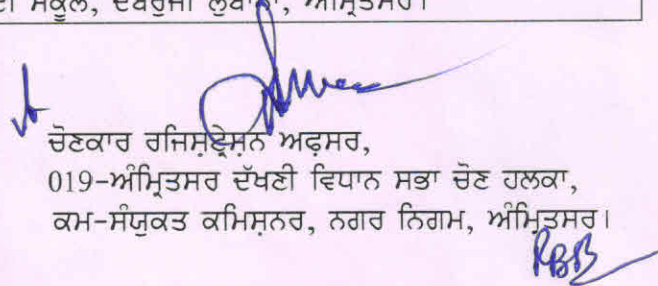 ਸਕੂਲ, ਦਬੁਰਜੀ ਲੁਬਾਣਾ, ਅੰਮ੍ਰਿਤਸਰ।
ਚੋਣਕਾਰ ਰਜਿਸਟ੍ਰੇਸ਼ਨ ਅਫ਼ਸਰ,
019-ਅੰਮ੍ਰਿਤਸਰ ਦੱਖਣੀ ਵਿਧਾਨ ਸਭਾ ਚੋਣ ਹਲਕਾ,
ਕਮ-ਸੰਯੁਕਤ ਕਮਿਸ਼ਨਰ, ਨਗਰ ਨਿਗਮ, ਅੰਮ੍ਰਿਤਸਰ।